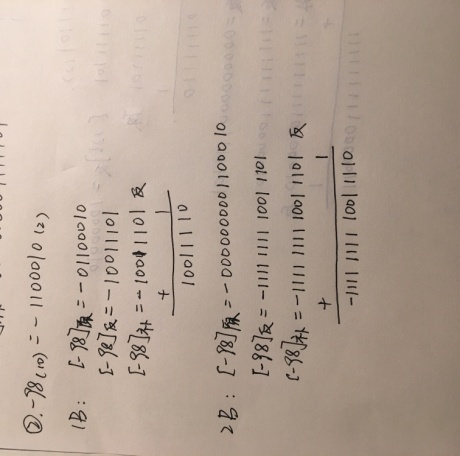 ②. -98(10) = -1100010(2)
1B: [-98]原 = -01100010
[-98]反 = -10011101
[-98]补 = -10011101 反
+ 1
10011110
2B: [-98]原 = -0000000001100010
[-98]反 = -1111 1111 1001 1101
[-98]补 = -1111 1111 1001 1101 反
+ 1
-1111 1111 1001 1110